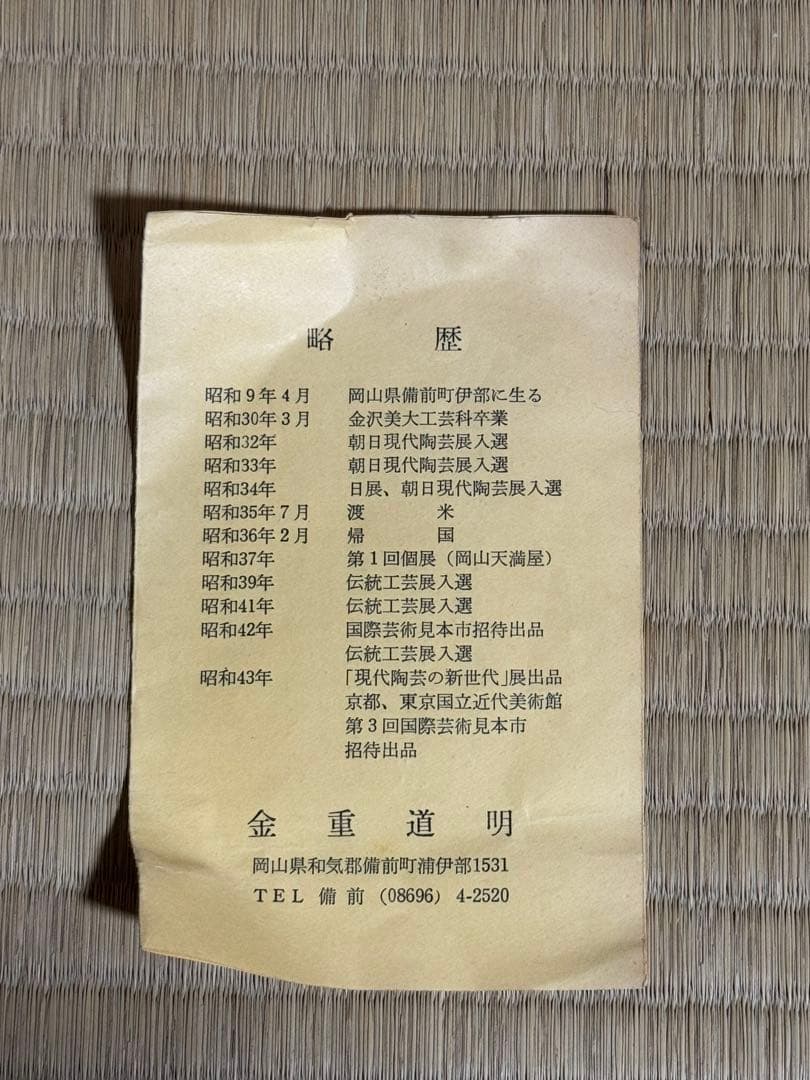 略歴
昭和9年4月 岡山県備前町伊部に生る
昭和30年3月 金沢美大工芸科卒業
昭和32年 朝日現代陶芸展入選
昭和33年 朝日現代陶芸展入選
昭和34年 日展、朝日現代陶芸展入選
昭和35年7月 渡米
昭和36年2月 帰国
昭和37年 第1回個展（岡山天満屋）
昭和39年 伝統工芸展入選
昭和41年 伝統工芸展入選
昭和42年 国際芸術見本市招待出品
伝統工芸展入選
昭和43年 「現代陶芸の新世代」展出品
京都、東京国立近代美術館
第3回国際芸術見本市
招待出品
金重道明
岡山県和気郡備前町浦伊部1531
TEL 備前 (08696) 4-2520